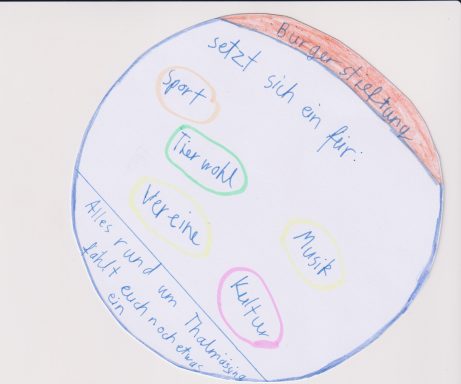 Bürgerstiftung
setzt sich ein für:
Sport
Tierwohl
Vereine
Musik
Kultur
Alles rund um Thalmässing
fählt euch noch etwas
ein